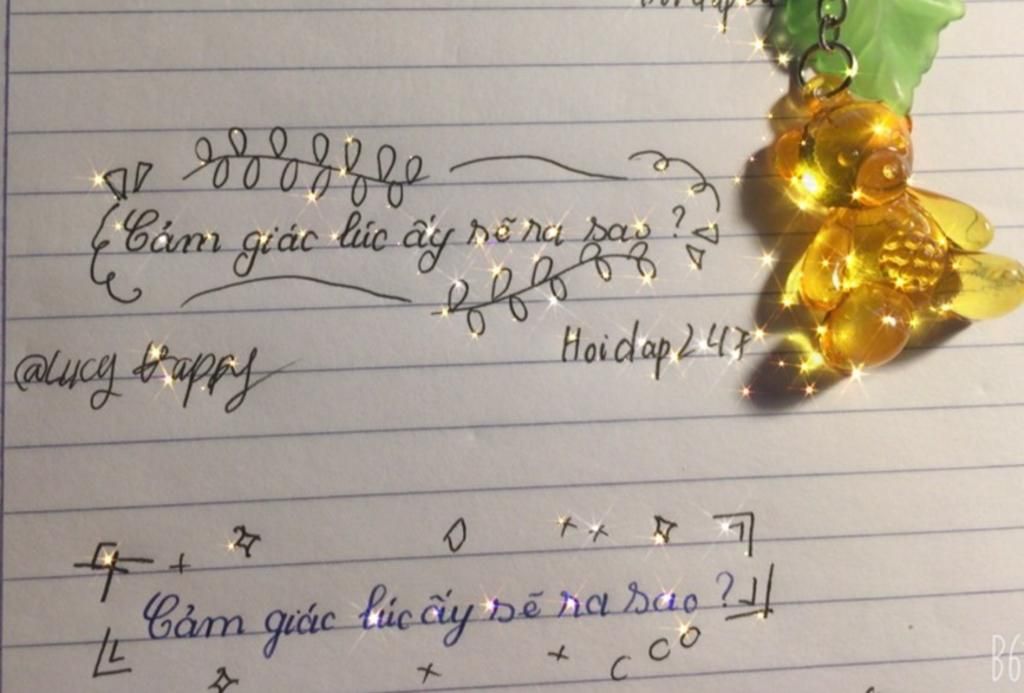 Cảm giác lúc ấy sẽ ra sao ?
@Lucy Happy
Hoidap247
Cảm giác lúc ấy sẽ ra sao ?
B6